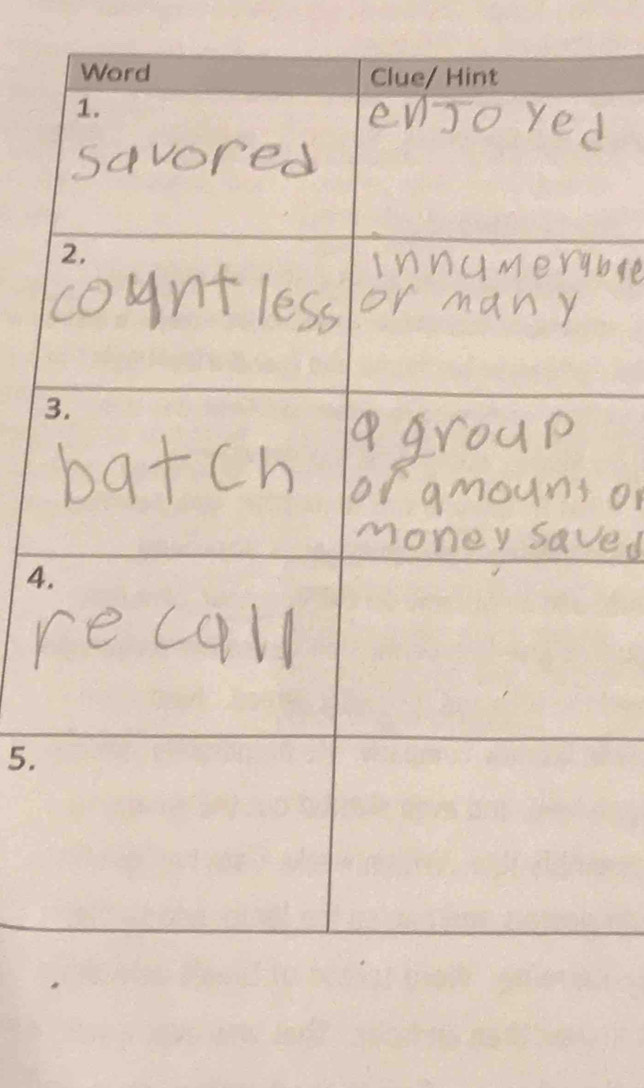 Word Clue/ Hint
1. enjoyed
savored
2. innumerable
countless or many
3. a group
batch or amount or
money saved
4.
recall
5.